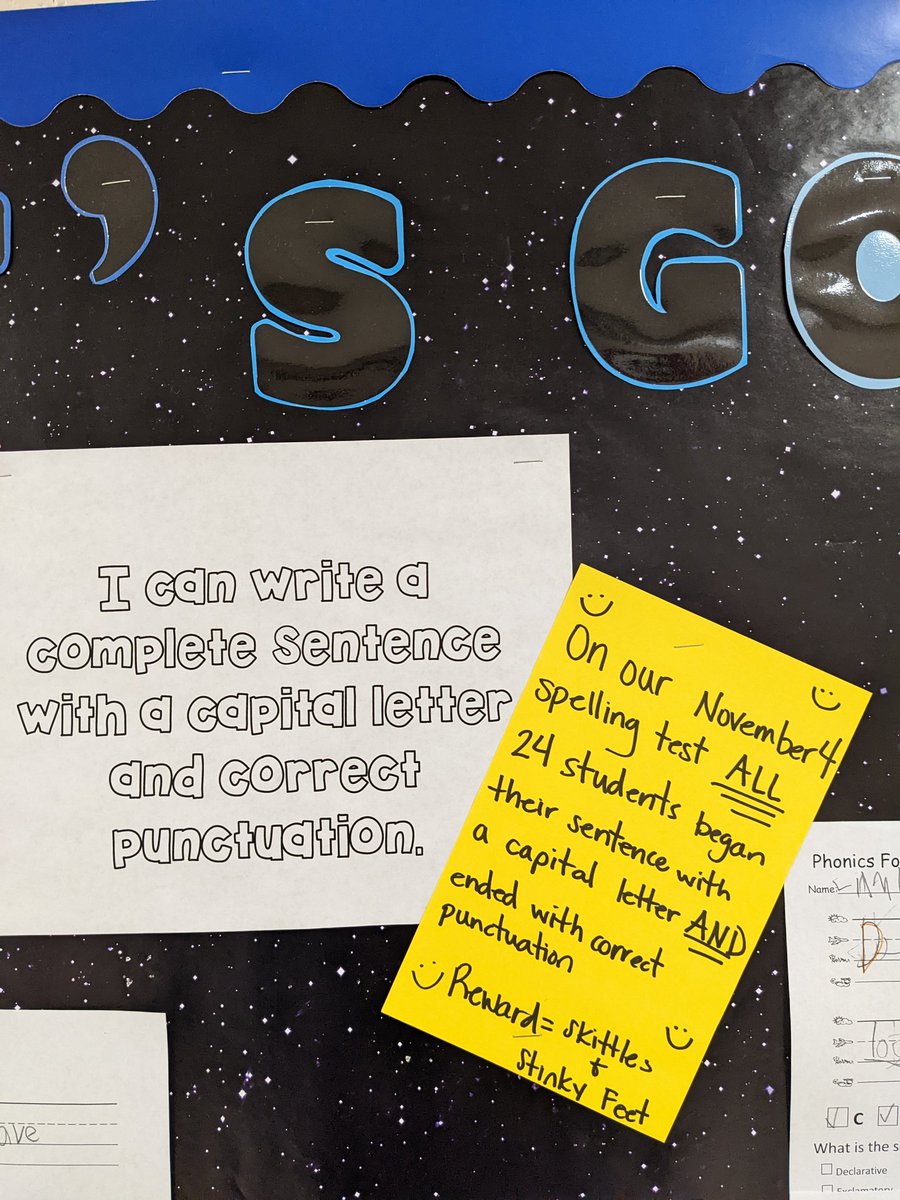 's GO
I can write a
complete sentence
with a capital letter
and correct
punctuation.
On our November 4
spelling test ALL
24 students began
their sentence with
a capital letter AND
ended with correct
punctuation
Reward = skittles
+
Stinky Feet
Phonics Fo
Name:
C
What is the s
Declarative
Exclamatory
ave